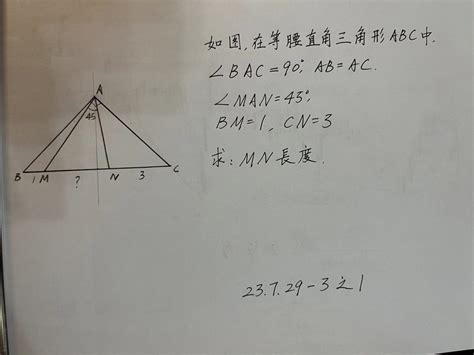 如图,在等腰直角三角形ABC中.
∠BAC=90°, AB=AC.
∠MAN=45°,
BM=1, CN=3
求:MN長度.
A
45
B 1 M ? N 3 C
23.7.29-3之1